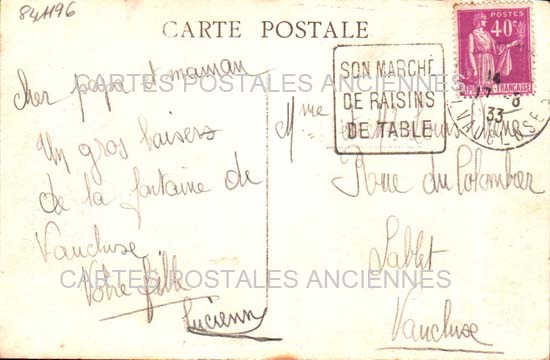 841196
CARTE POSTALE
Cher papa et maman
Un gros baisers
de la fontaine de
Vaucluse
Votre fille
Lucienne
SON MARCHÉ
DE RAISINS
DE TABLE
POSTES
40c
RÉPUBLIQUE FRANÇAISE
14
17 - 8
33
VAUCLUSE
Mme
Rue du Colombier
Sablet
Vaucluse
CARTES POSTALES ANCIENNES
CARTES POSTALES ANCIENNES